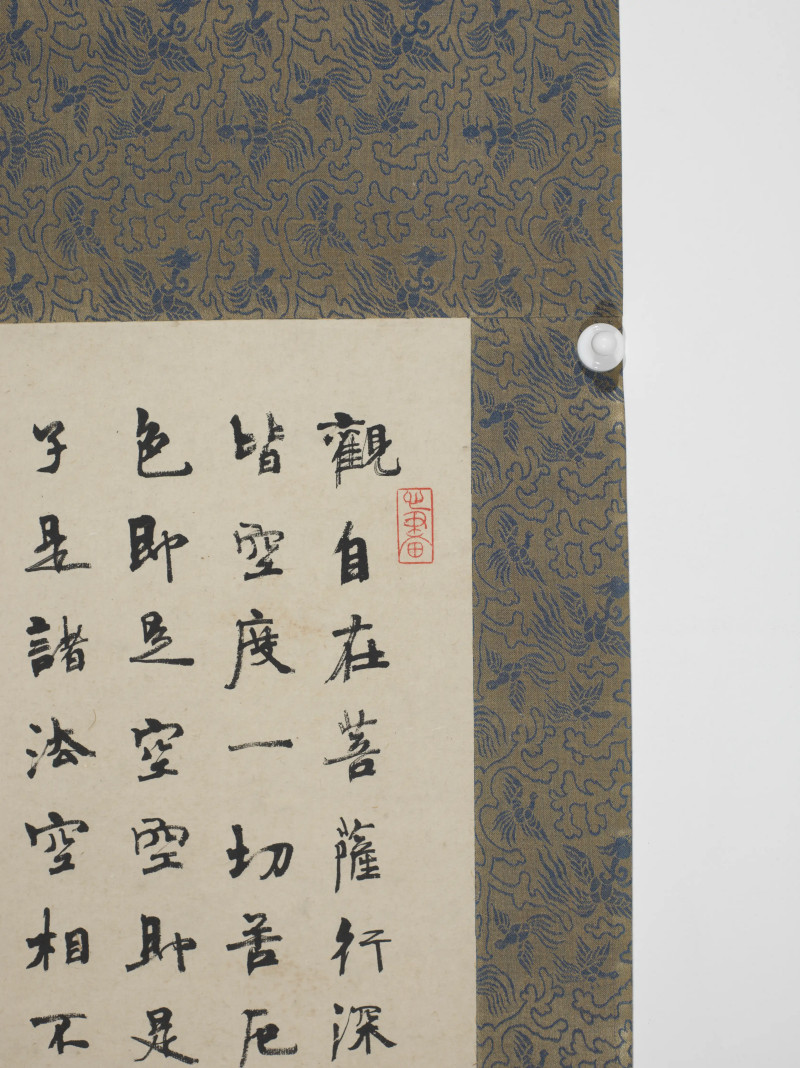 觀自在菩薩行深
皆空度一切苦厄
色即是空空即是
子是諸法空相不